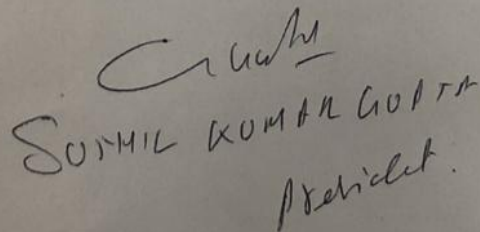 SUSHIL KUMAR GUPTA
President.